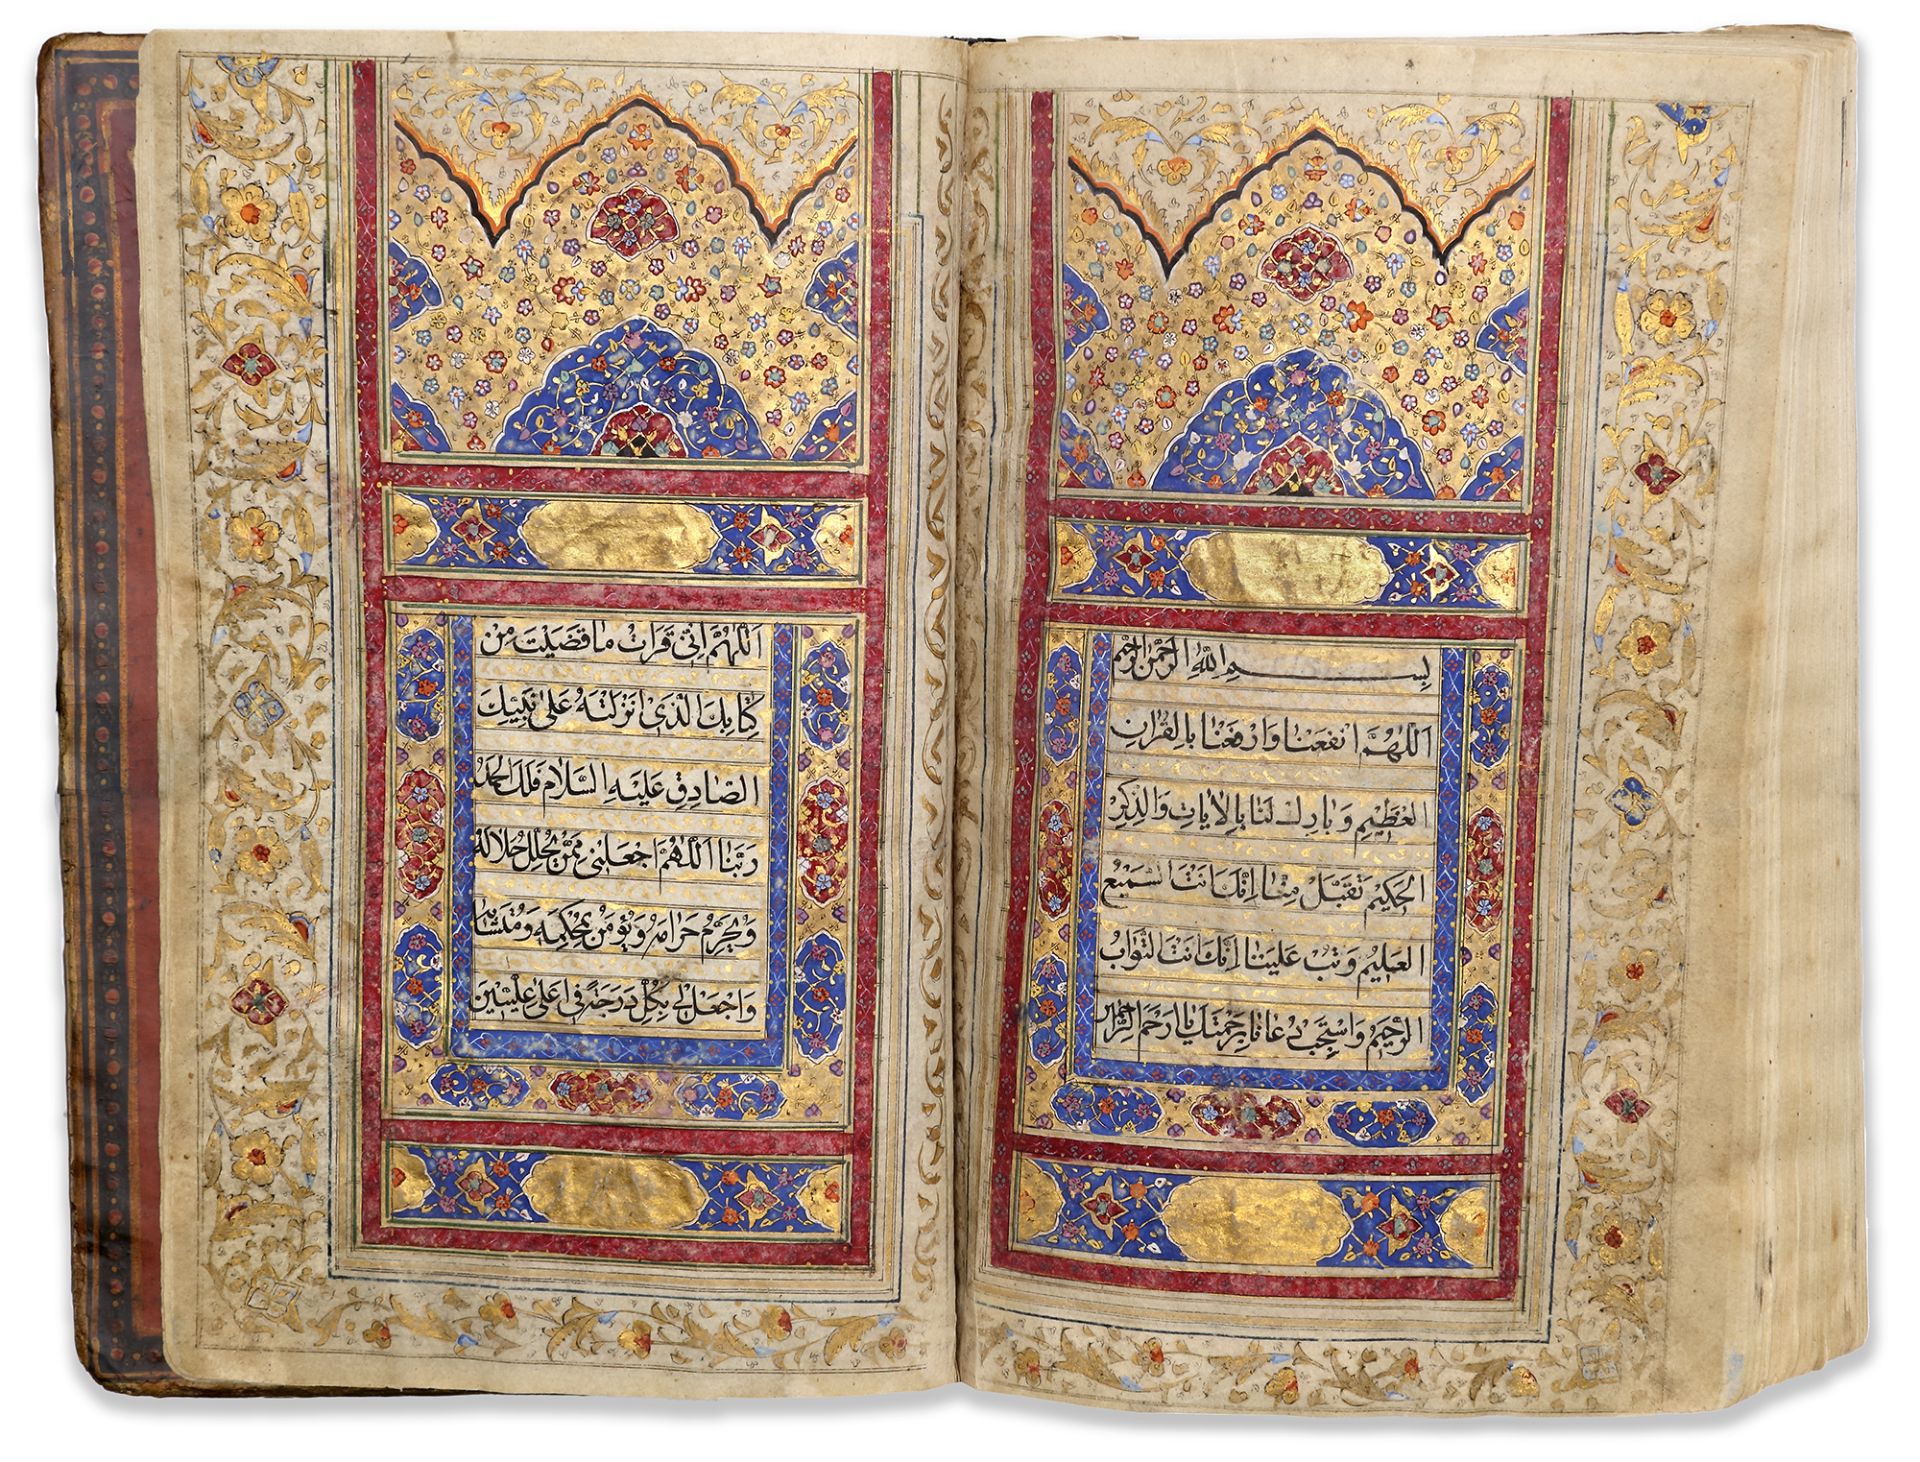 بِسْمِ اللّٰهِ الرَّحْمٰنِ الرَّحِيْمِ
اَللّٰهُمَّ انْفَعْنٰا وَارْفَعْنٰا بِالْقُرْاٰنِ
الْعَظِيْمِ وَبٰارِكْ لَنٰا بِالْاٰيٰاتِ وَالذِّكْرِ
الْحَكِيْمِ تَقَبَّلْ مِنّٰا اِنَّكَ اَنْتَ السَّمِيْعُ
الْعَلِيْمُ وَتُبْ عَلَيْنٰا اِنَّكَ اَنْتَ التَّوّٰابُ
الرَّحِيْمُ وَاسْتَجِبْ دُعٰانٰا بِرَحْمَتِكَ يٰا اَرْحَمَ الرّٰاحِمِيْنَ
اَللّٰهُمَّ اِنّٖى قَرَاْتُ مٰا قَضَيْتَ مِنْ
كِتٰابِكَ الَّذٖى اَنْزَلْتَهُ عَلٰى نَبِيِّكَ
الصّٰادِقِ عَلَيْهِ السَّلٰامُ فَلَكَ الْحَمْدُ
رَبَّنٰا اَللّٰهُمَّ اجْعَلْنٖى مِمَّنْ يُحَلِّلُ حَلٰالَهُ
وَيُحَرِّمُ حَرٰامَهُ وَيُؤْمِنُ بِمُحْكَمِهٖ وَمُتَشٰابِهِهٖ
وَاجْعَلْ لٖى بِكُلِّ دَرَجَةً فٖى اَعْلٰى عِلِّيّٖيْنَ